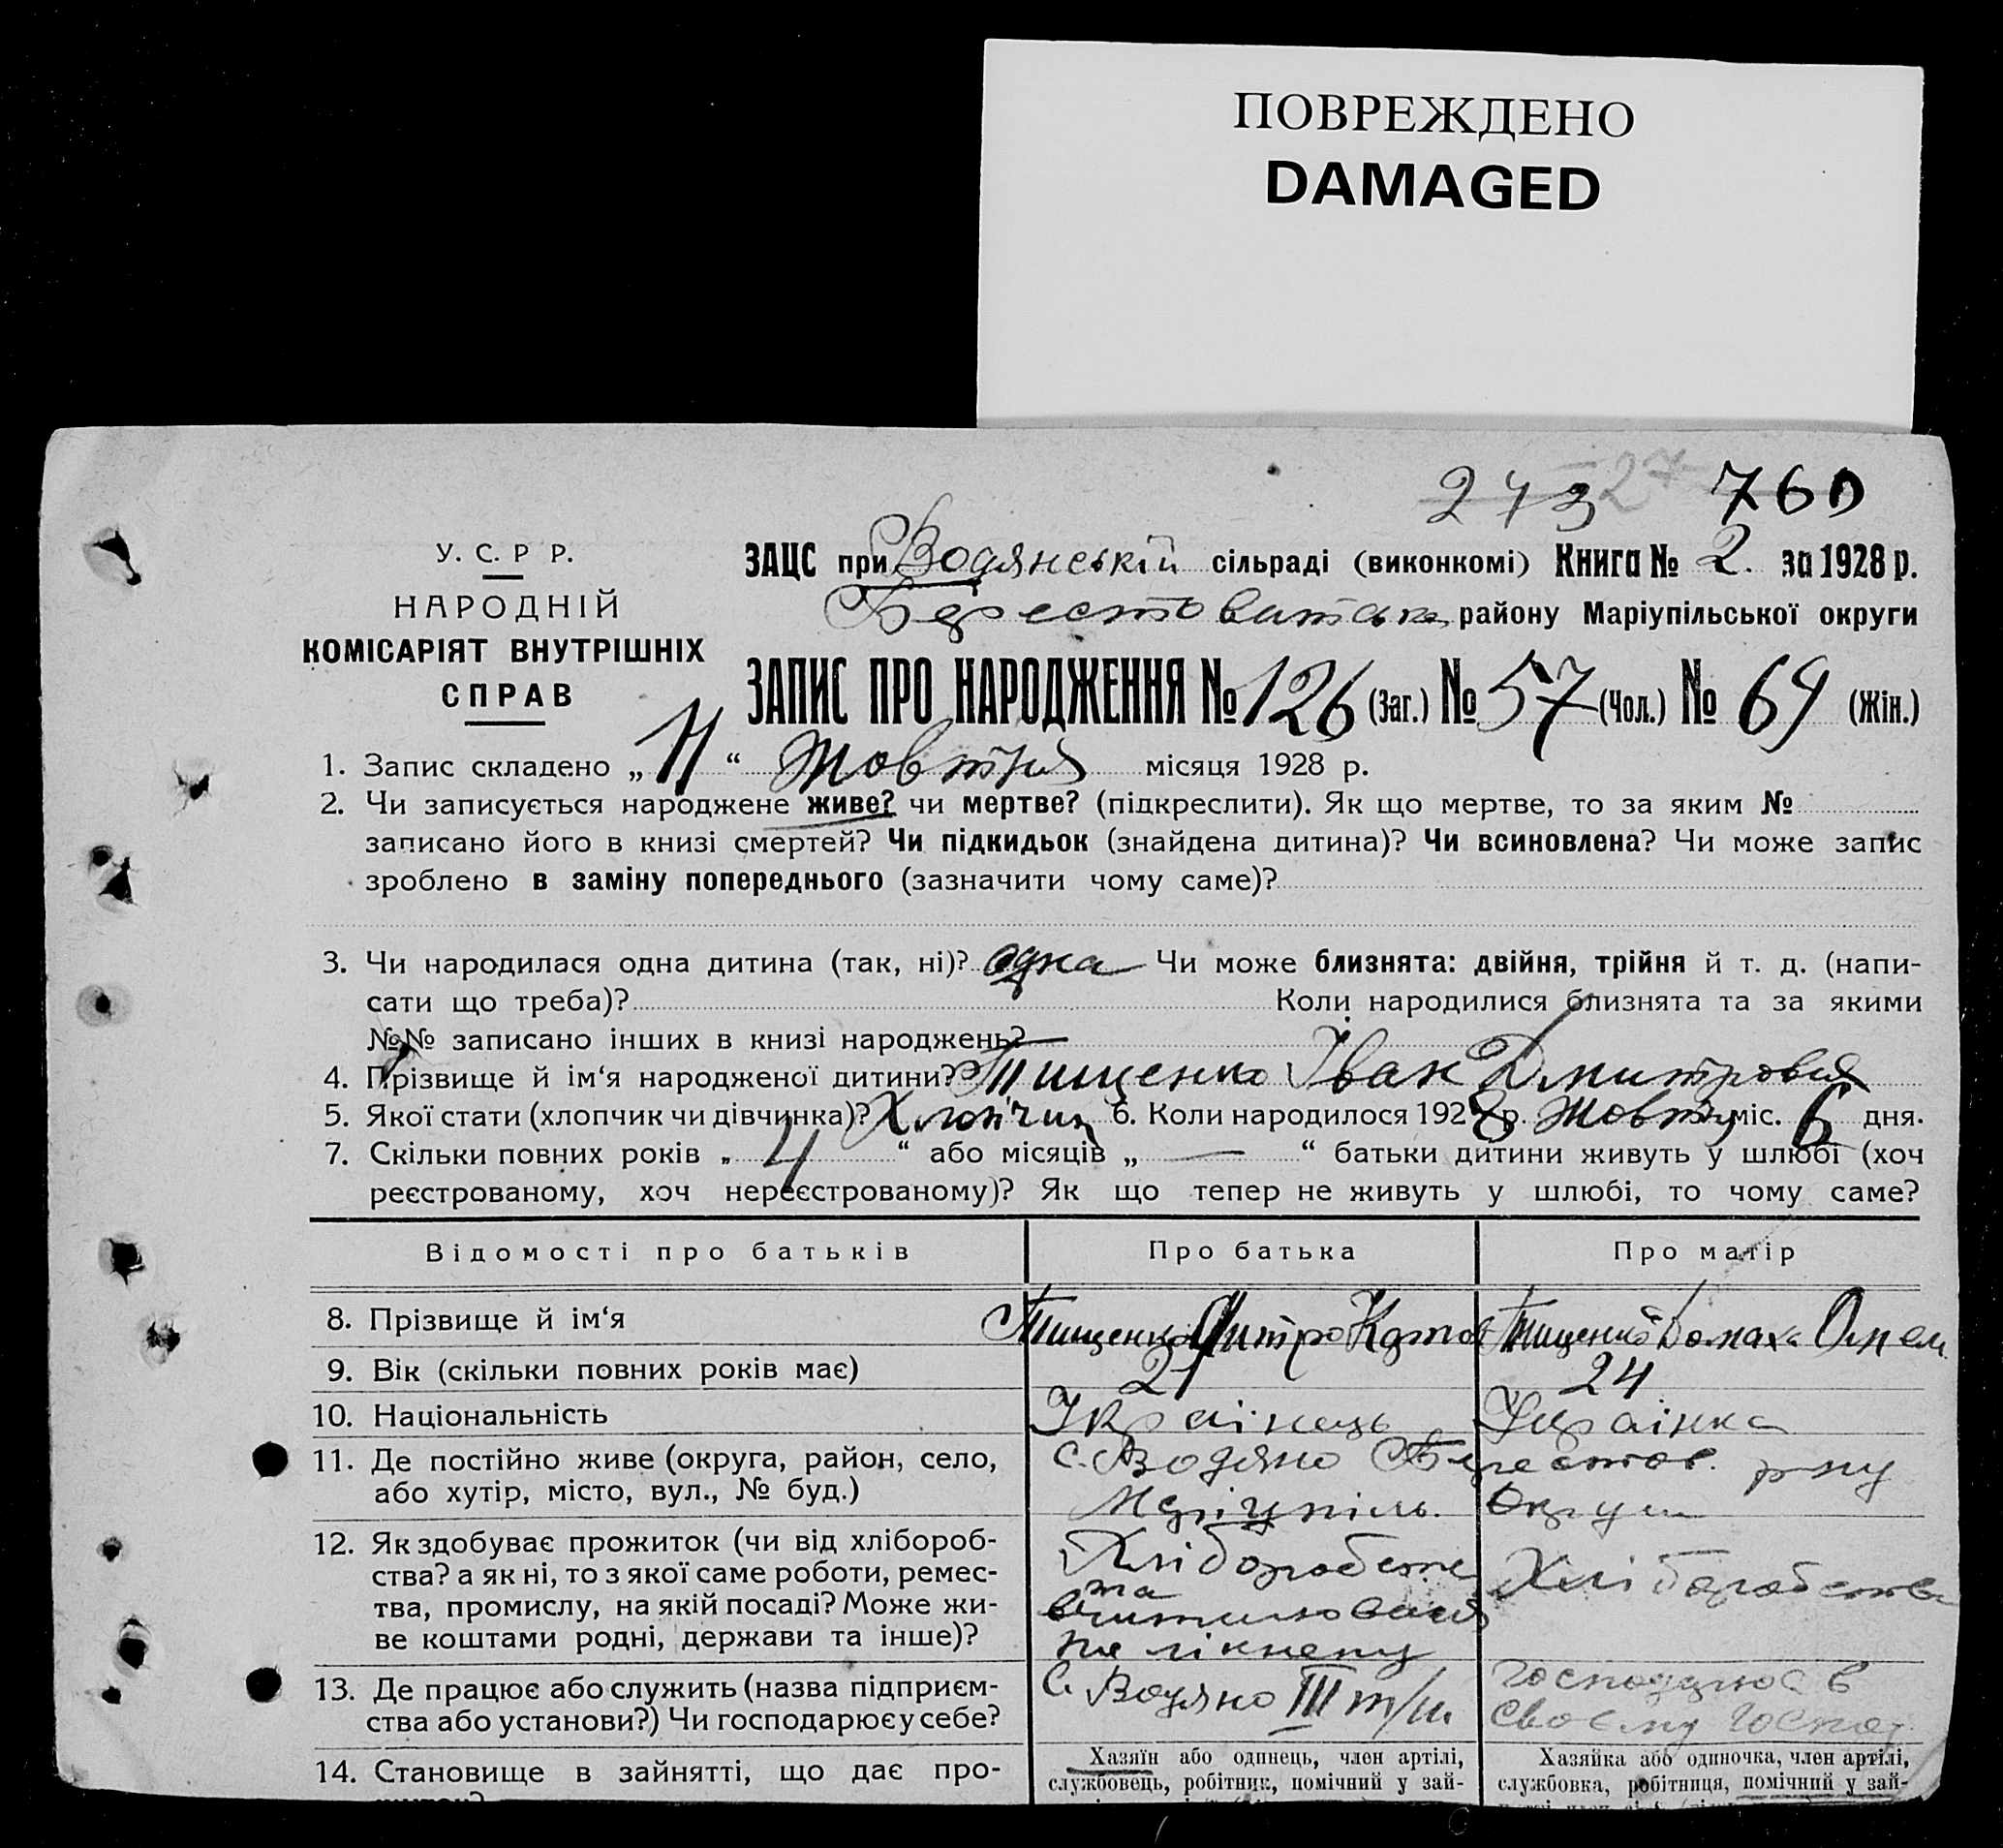 ПОВРЕЖДЕНО
DAMAGED
243 27 760
У. С. Р Р.
НАРОДНІЙ
КОМІСАРІЯТ ВНУТРІШНІХ
СПРАВ
ЗАЦС при Водянській сільраді (виконкомі) Книга № 2. за 1928 р.
району Маріупільської округи
ЗАПИС ПРО НАРОДЖЕННЯ № 126 (Заг.) № 57 (Чол.) № 69 (Жін.)
1. Запис складено „ 11 “ Жовтня місяця 1928 р.
2. Чи записується народжене живе? чи мертве? (підкреслити). Як що мертве, то за яким №
записано його в книзі смертей? Чи підкидьок (знайдена дитина)? Чи всиновлена? Чи може запис
зроблено в заміну попереднього (зазначити чому саме)?
3. Чи народилася одна дитина (так, ні)? одна Чи може близнята: двійня, трійня й т. д. (напи-
сати що треба)? Коли народилися близнята та за якими
№№ записано інших в книзі народжень?
4. Прізвище й ім‘я народженої дитини? Тищенко Іван Дмитрович
5. Якої стати (хлопчик чи дівчинка)? Хлопчик 6. Коли народилося 1928 р. Жовтн міс. 6 дня.
7. Скільки повних років „ 4 “ або місяців „ — “ батьки дитини живуть у шлюбі (хоч
реєстрованому, хоч нереєстрованому)? Як що тепер не живуть у шлюбі, то чому саме?
Відомості про батьків Про батька Про матір
8. Прізвище й ім‘я Тищенко Дмитро Тищенко Домаха Омел.
9. Вік (скільки повних років має) 21 24
10. Національність Українець Українка
11. Де постійно живе (округа, район, село, с. Водяно Берестов. р-ну
або хутір, місто, вул., № буд.) Маріупіль. Округи
12. Як здобуває прожиток (чи від хлібороб- Хліборобство Хліборобство
ства? а як ні, то з якої саме роботи, ремес- та
тва, промислу, на якій посаді? Може жи-
ве коштами родні, держави та інше)? на лікнепу
13. Де працює або служить (назва підприєм- С. Водяно III т/ш. господарює в
ства або установи?) Чи господарює у себе? своєму господ.
14. Становище в зайнятті, що дає про- Хазяїн або одинець, член артілі, Хазяйка або одиночка, член артілі,
службовець, робітник, помічний у зай- службовка, робітниця, помічний у зай-